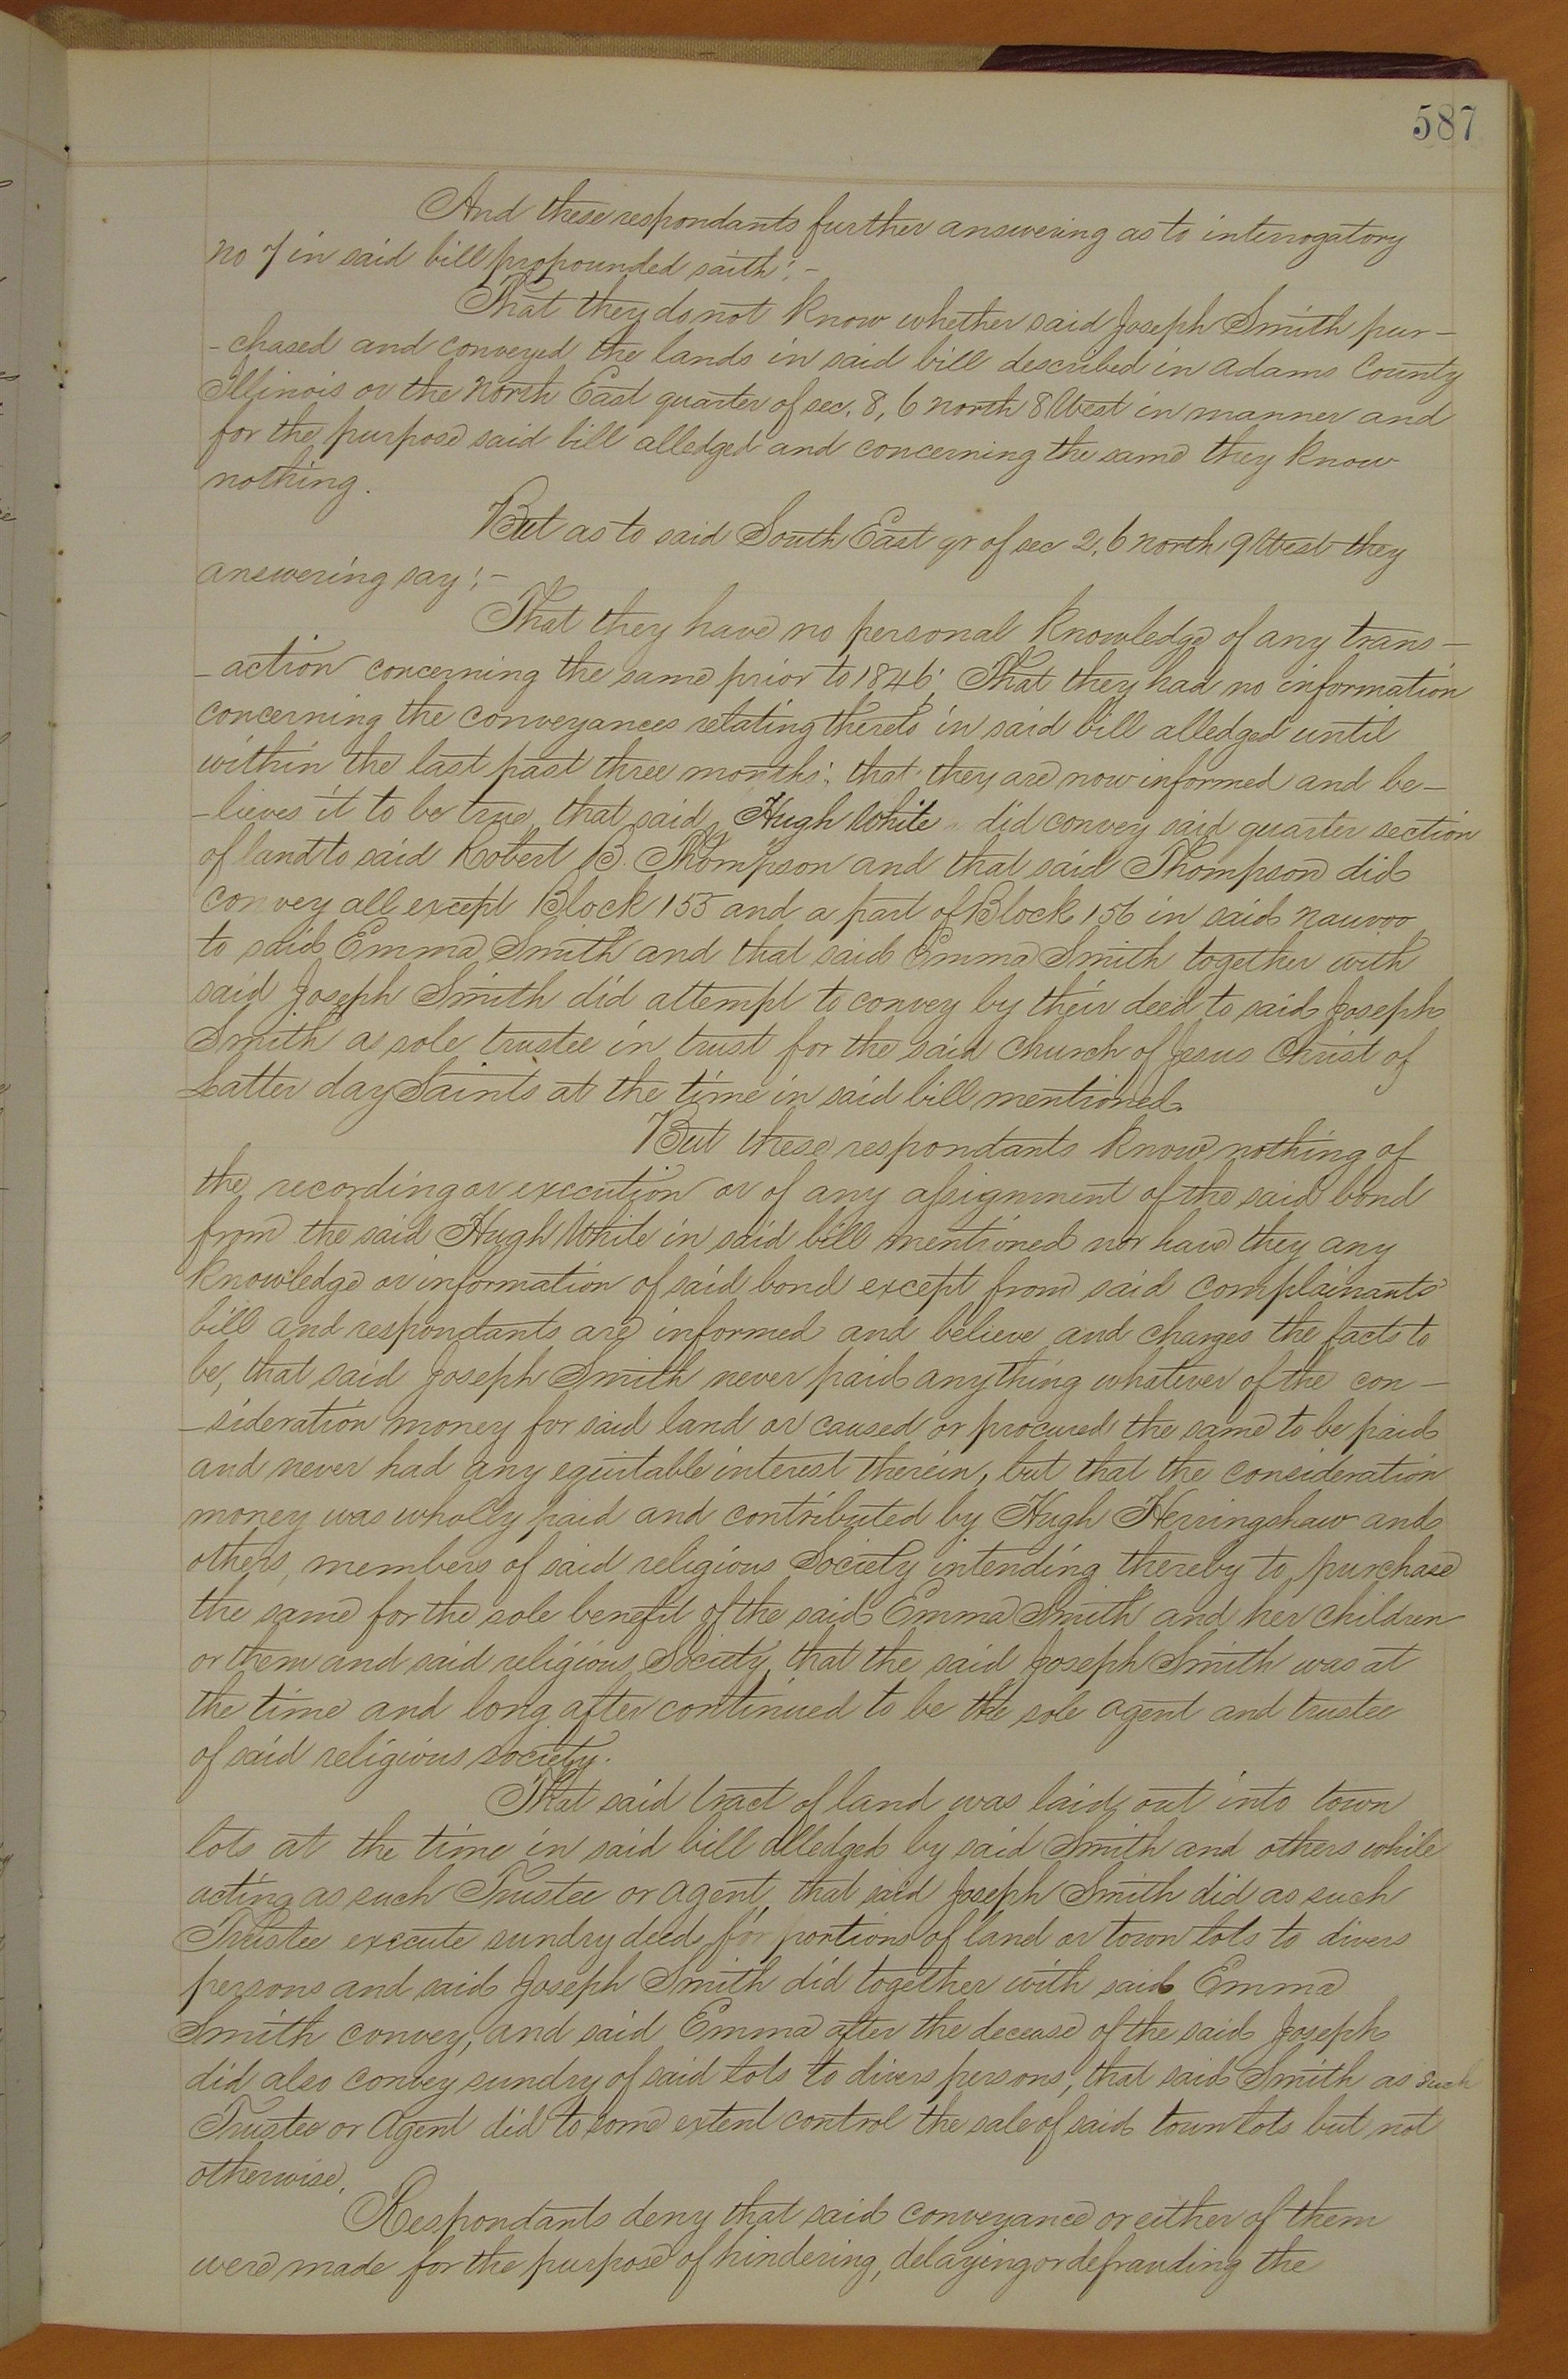 587
And these respondants further answering as to interrogatory
No 7 in said bill propounded saith:-
That they do not know whether said Joseph Smith pur-
-chased and conveyed the lands in said bill described in Adams County
Illinois or the North East quarter of sec. 8, 6 North 8 West in manner and
for the purpose said bill alledged and concerning the same they know
nothing.
But as to said South East qr of sec 2, 6 North 9 West they
answering say:-
That they have no personal knowledge of any trans-
-action concerning the same prior to 1846; That they had no information
concerning the conveyances relating thereto in said bill alledged until
within the last past three months; that they are now informed and be-
-lieves it to be true, that said Hugh White did convey said quarter section
of land to said Robert B. Thompson and that said Thompson did
convey all except Block 155 and a part of Block 156 in said Nauvoo
to said Emma Smith and that said Emma Smith together with
said Joseph Smith did attempt to convey by their deed to said Joseph
Smith as sole trustee in trust for the said Church of Jesus Christ of
Latter day Saints at the time in said bill mentioned.
But these respondants know nothing of
the recording or execution or of any assignment of the said bond
from the said Hugh White in said bill mentioned nor have they any
knowledge or information of said bond except from said complainants'
bill and respondants are informed and believe and charges the facts to
be, that said Joseph Smith never paid anything whatever of the con-
-sideration money for said land or caused or procured the same to be paid
and never had any equitable interest therein, but that the consideration
money was wholly paid and contributed by Hugh Herringshaw and
others, members of said religious Society intending thereby to purchase
the same for the sole benefit of the said Emma Smith and her children
or them and said religious Society, that the said Joseph Smith was at
the time and long after continued to be the sole agent and trustee
of said religious society.
That said tract of land was laid out into town
lots at the time in said bill alledged by said Smith and others while
acting as such Trustee or agent, that said Joseph Smith did as such
Trustee execute sundry deeds for portions of land or town lots to divers
persons and said Joseph Smith did together with said Emma
Smith convey, and said Emma after the decease of the said Joseph
did also convey sundry of said lots to divers persons, that said Smith as such
Trustee or Agent did to some extent control the sale of said town lots but not
otherwise.
Respondants deny that said conveyance or either of them
were made for the purpose of hindering, delaying or defrauding the